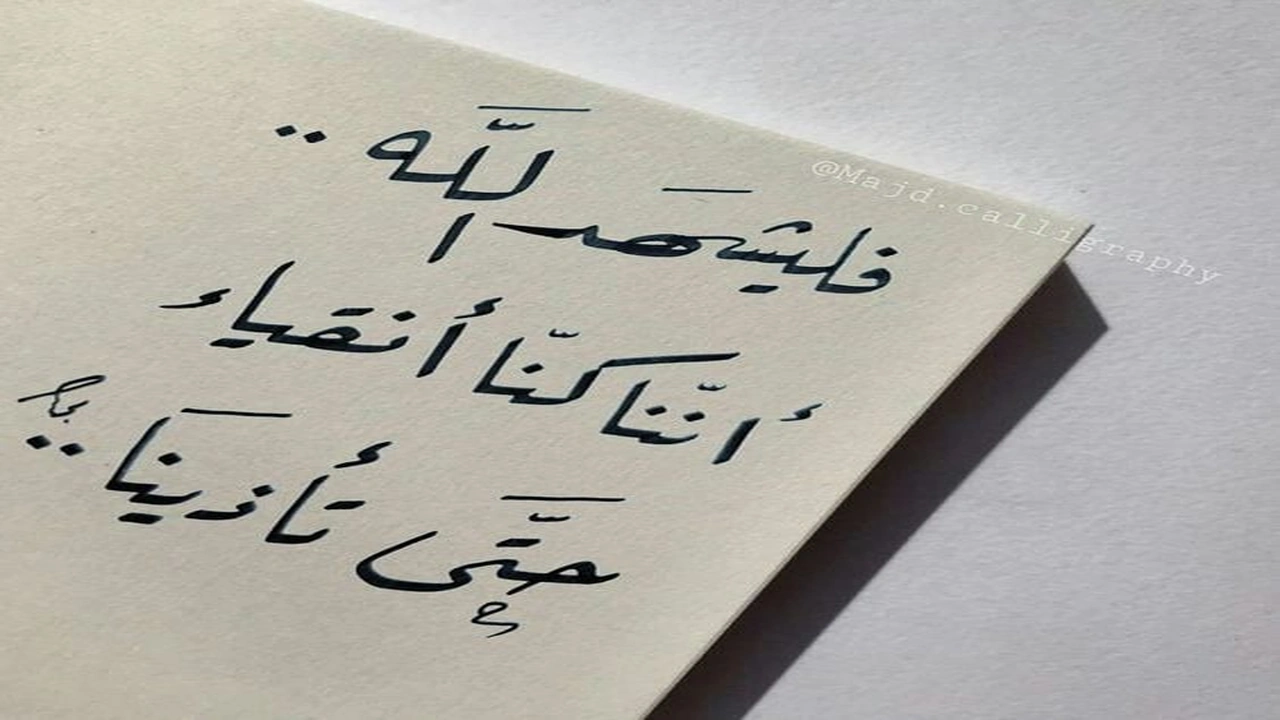 فليشهد الله ..
أننّا كنّا أنقياء
حتّى تأذينا ..
@Majd.calligraphy